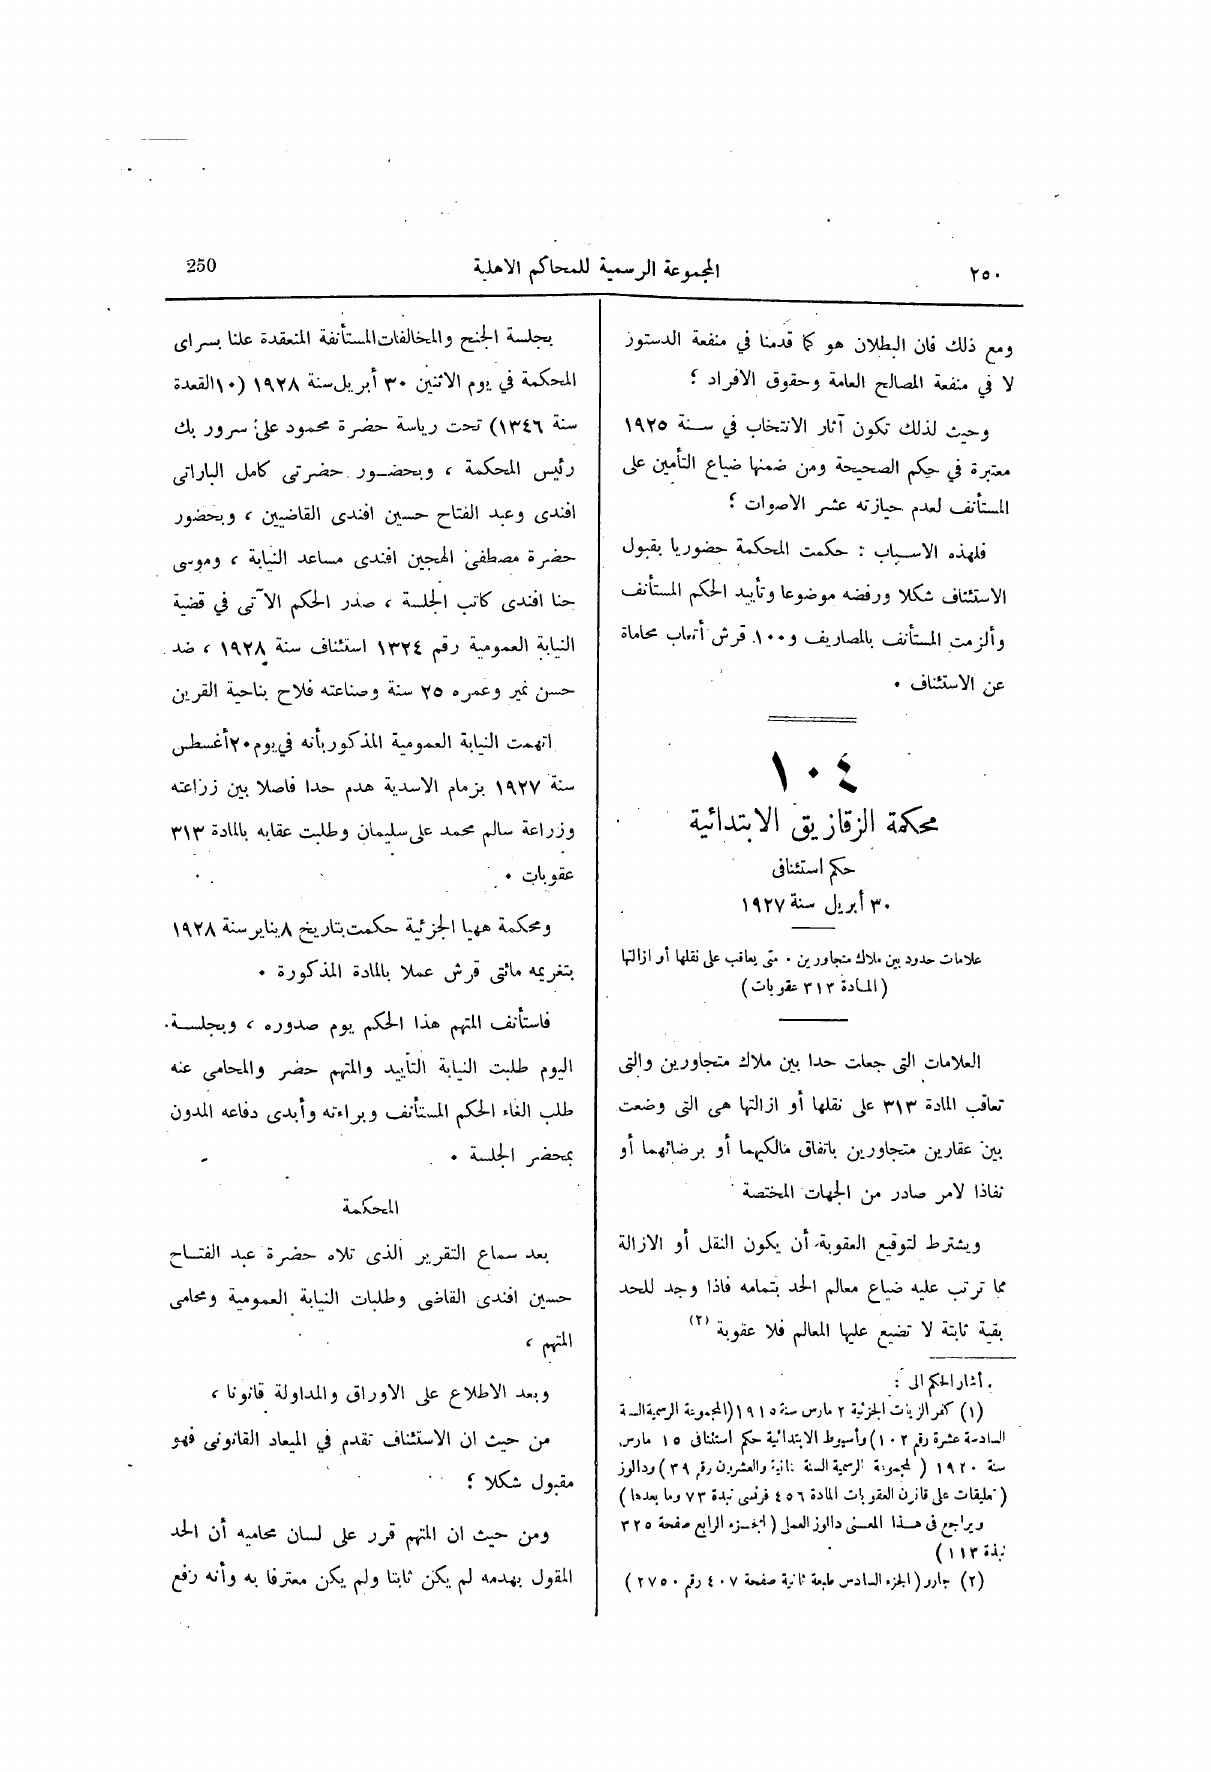 ٢٥٠
المجموعة الرسمية للمحاكم الاهلية
250
ومع ذلك فان البطلان هو كما قدمنا في منفعة الدستور
لا في منفعة المصالح العامة وحقوق الافراد ؛
وحيث لذلك تكون آثار الانتخاب في سنة ١٩٢٥
معتبرة في حكم الصحيحة ومن ضمنها ضياع التأمين على
المستأنف لعدم حيازته عشر الاصوات ؛
فلهذه الاسباب : حكمت المحكمة حضوريا بقبول
الاستئناف شكلا ورفضه موضوعا وتأييد الحكم المستأنف
وألزمت المستأنف بالمصاريف و١٠٠ قرش أتعاب محاماة
عن الاستئناف ٠
١٠٤
محكمة الزقازيق الابتدائية
حكم استئنافى
٣٠ أبريل سنة ١٩٢٧
علامات حدود بين ملاك متجاورين ٠ متى يعاقب على نقلها أو ازالتها
( المادة ٣١٣ عقوبات )
العلامات التى جعلت حدا بين ملاك متجاورين والتى
تعاقب المادة ٣١٣ على نقلها أو ازالتها هى التى وضعت
بين عقارين متجاورين باتفاق مالكيهما أو برضائهما أو
نفاذا لامر صادر من الجهات المختصة
ويشترط لتوقيع العقوبة أن يكون النقل أو الازالة
مما ترتب عليه ضياع معالم الحد بتمامه فاذا وجد للحد
بقية ثابتة لا تضيع عليها المعالم فلا عقوبة (٢)
أشار الحكم الى :
(١) كفر الزيات الجزئية ٢ مارس سنة ١٩١٥ (المجموعة الرسمية السنة
السادسة عشرة رقم ١٠٢) وأسيوط الابتدائية حكم استئنافى ١٥ مارس
سنة ١٩٢٠ ( المجموعة الرسمية السنة الثانية والعشرين رقم ٣٩ ) ودالوز
( تعليقات على قانون العقوبات المادة ٤٥٦ فرنسى نبذة ٧٣ وما بعدها )
ويراجع فى هذا المعنى دالوز العملى ( الجزء الرابع صفحة ٣٢٥
نبذة ١١٣ )
(٢) جارو ( الجزء السادس طبعة ثانية صفحة ٤٠٧ رقم ٢٧٥٠ )
بجلسة الجنح والمخالفات المستأنفة المنعقدة علنا بسراى
المحكمة في يوم الاثنين ٣٠ أبريل سنة ١٩٢٨ (١٠ القعدة
سنة ١٣٤٦) تحت رياسة حضرة محمود على سرور بك
رئيس المحكمة ، وبحضور حضرتى كامل الباراتى
افندى وعبد الفتاح حسين افندى القاضيين ، وبحضور
حضرة مصطفى الهجين افندى مساعد النيابة ، وموسى
حنا افندى كاتب الجلسة ، صدر الحكم الآتى في قضية
النيابة العمومية رقم ١٣٢٤ استئناف سنة ١٩٢٨ ، ضد
حسن نمير وعمره ٢٥ سنة وصناعته فلاح بناحية القرين
اتهمت النيابة العمومية المذكور بأنه في يوم ٢٠ أغسطس
سنة ١٩٢٧ بزمام الاسدية هدم حدا فاصلا بين زراعته
وزراعة سالم محمد على سليمان وطلبت عقابه بالمادة ٣١٣
عقوبات ٠
ومحكمة ههيا الجزئية حكمت بتاريخ ٨ يناير سنة ١٩٢٨
بتغريمه مائتى قرش عملا بالمادة المذكورة ٠
فاستأنف المتهم هذا الحكم يوم صدوره ، وبجلسة
اليوم طلبت النيابة التأييد والمتهم حضر والمحامى عنه
طلب الغاء الحكم المستأنف وبراءته وأبدى دفاعه المدون
بمحضر الجلسة ٠
المحكمة
بعد سماع التقرير الذى تلاه حضرة عبد الفتاح
حسين افندى القاضى وطلبات النيابة العمومية ومحامى
المتهم ،
وبعد الاطلاع على الاوراق والمداولة قانونا ،
من حيث ان الاستئناف تقدم في الميعاد القانونى فهو
مقبول شكلا ؛
ومن حيث ان المتهم قرر على لسان محاميه أن الحد
المقول بهدمه لم يكن ثابتا ولم يكن معترفا به وأنه رفع